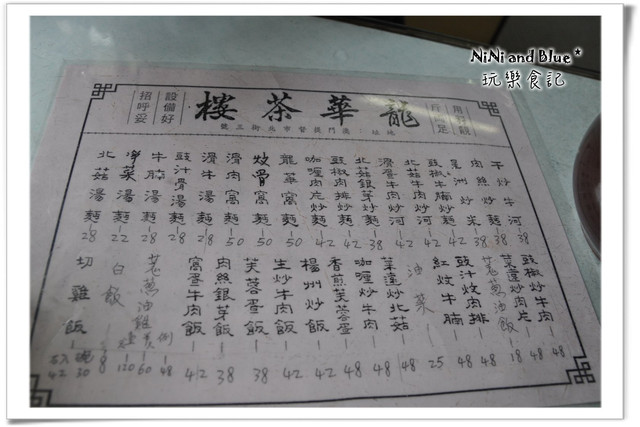 NiNi and Blue*
玩樂食記
龍華茶樓
設備好
招呼妥
地址:澳門提督市北街三號
干炒牛河 38
肉絲炒麵 38
星洲炒米 38
豉椒牛腩炒麵 42
北菇牛肉炒河 42
滑蛋牛肉炒河 42
北菇銀芽炒麵 38
豉椒肉排炒麵 42
咖喱肉片炒麵 42
龍華窩麵 50
炆骨窩麵 50
滑肉窩麵 50
滑牛湯麵 28
豉汁骨湯麵 28
牛腩湯麵 28
淨菜湯麵 22
北菇湯麵 28
豉椒炒牛肉 48
菜薳炒肉片 48
花葱油飯 18
豉汁炒肉排 48
紅炆牛腩 48
油菜 25
菜薳炒北菇 48
咖喱炒牛肉 48
香煎芙蓉蛋 48
楊州炒飯 42
生炒牛肉飯 42
芙蓉蛋飯 38
肉絲銀芽飯 38
窩蛋牛肉飯 42
花葱油雞 例 48 60 120
白飯 8
切雞飯 碗 30 42